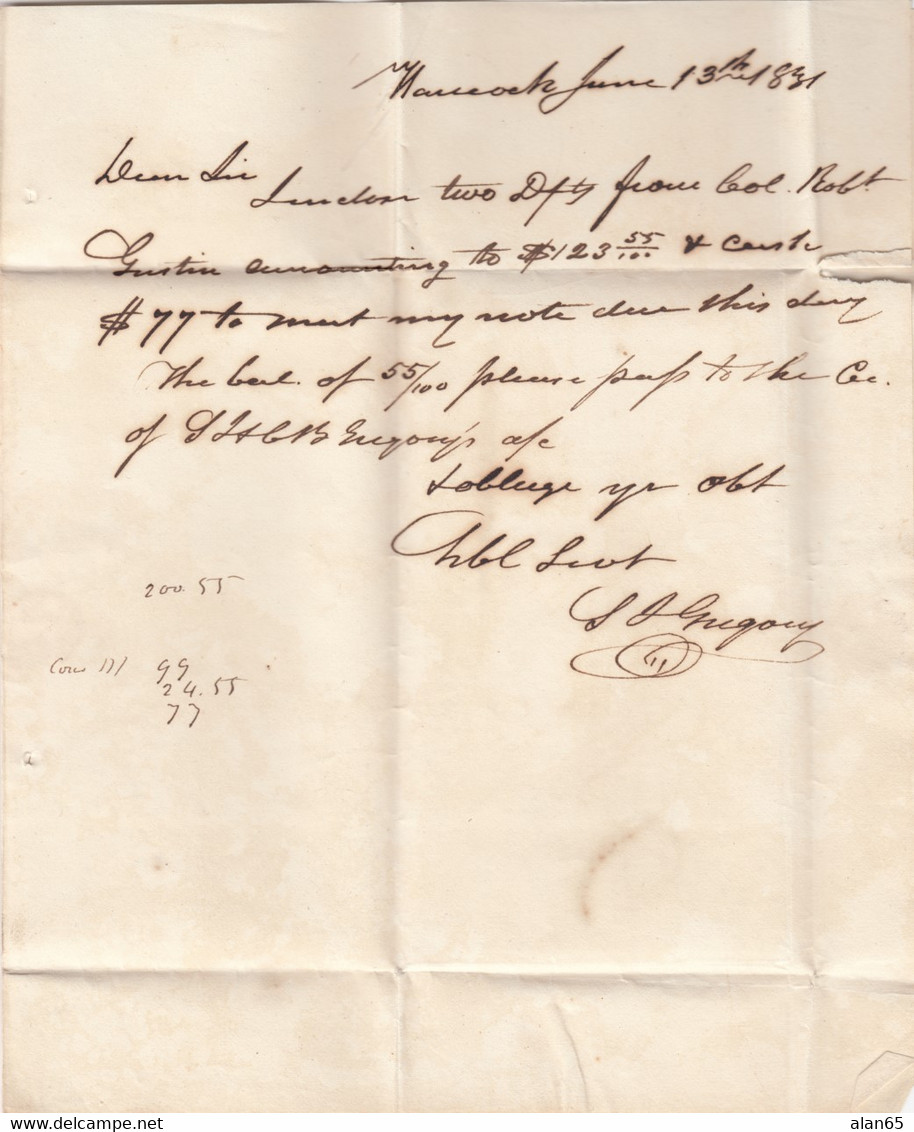 Hancock June 13th 1831
Dear Sir
I enclose two Dfts from Col. Robt
Gustin amounting to $123 55/100 & cash
$77 to meet my note due this day
The bal. of 55/100 please pass to the Cr.
of S & C B Gregory's a/c
& obleige yr obt
Hbl Servt
S S Gregory
200.55
99
24.55
77
alan65